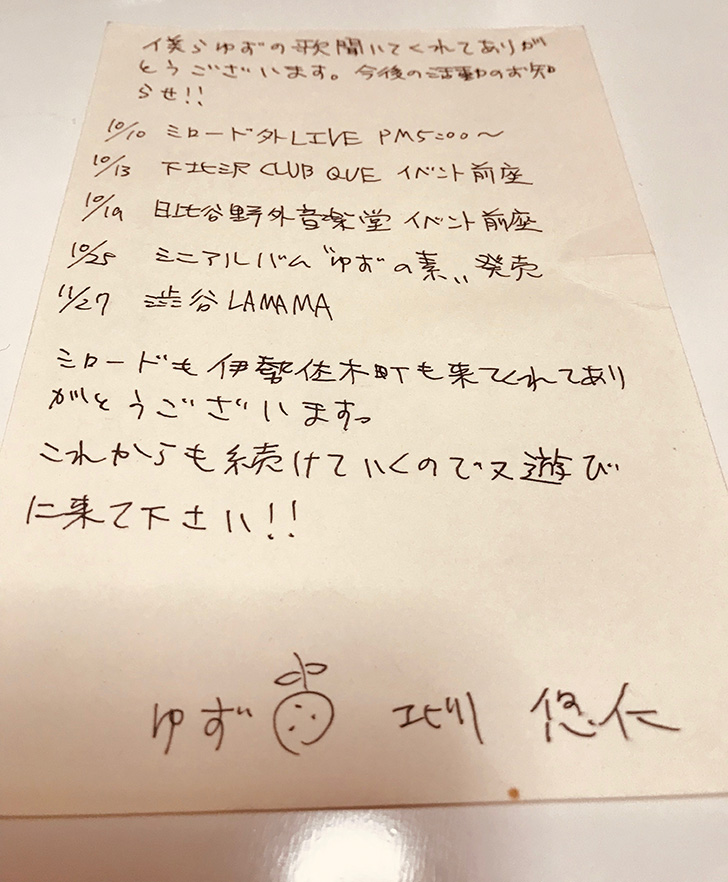 僕らゆずの歌聞いてくれてありが
とうございます。今後の活動のお知
らせ!!
10/10 ミロード外LIVE PM5:00〜
10/13 下北沢 CLUB QUE イベント前座
10/19 日比谷野外音楽堂 イベント前座
10/25 ミニアルバム〝ゆずの素〟発売
11/27 渋谷 LAMAMA
ミロードも伊勢佐木町も来てくれてあり
がとうございますっ
これからも続けていくので又遊び
に来て下さい!!
ゆず 北川 悠仁